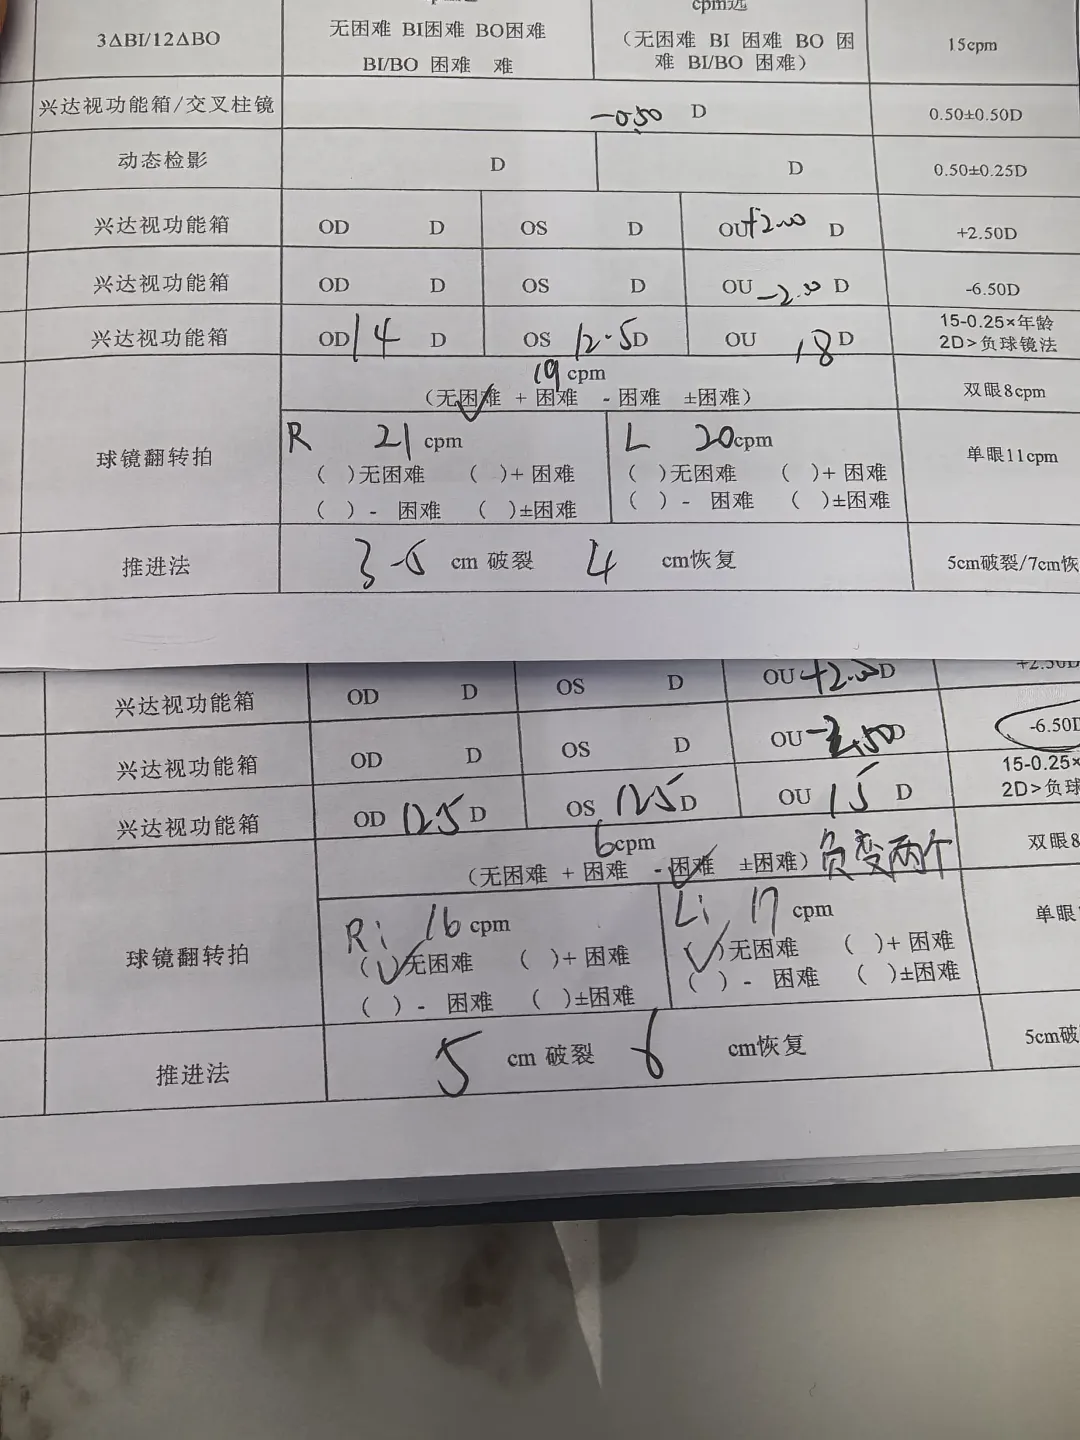 3ΔBI/12ΔBO
无困难 BI困难 BO困难
BI/BO 困难 难
cpm远
（无困难 BI 困难 BO 困
难 BI/BO 困难）
15cpm
兴达视功能箱/交叉柱镜 -0.50 D 0.50±0.50D
动态检影 D D 0.50±0.25D
兴达视功能箱 OD D OS D OU+2.00 D +2.50D
兴达视功能箱 OD D OS D OU -2.00 D -6.50D
兴达视功能箱 OD 14 D OS 12.5D OU 18D
15-0.25×年龄
2D>负球镜法
球镜翻转拍
19 cpm
（无困难 + 困难 - 困难 ±困难）
双眼8cpm
R 21 cpm
( )无困难 ( )+ 困难
( ) - 困难 ( )±困难
L 20cpm
( )无困难 ( )+ 困难
( ) - 困难 ( )±困难
单眼11cpm
推进法 cm 破裂 4 cm恢复 5cm破裂/7cm恢
兴达视功能箱 OD D OS D OU +2.00D +2.50D
兴达视功能箱 OD D OS D OU D -6.50D
兴达视功能箱 OD 12.5 D OS 12.5 D OU 15 D
15-0.25×
2D>负球
球镜翻转拍
6cpm
（无困难 + 困难 - 困难 ±困难）负变两个
双眼8
R: 16 cpm
(√)无困难 ( )+ 困难
( ) - 困难 ( )±困难
L: 17 cpm
(√)无困难 ( )+ 困难
( ) - 困难 ( )±困难
单眼
推进法 5 cm 破裂 6 cm恢复 5cm破